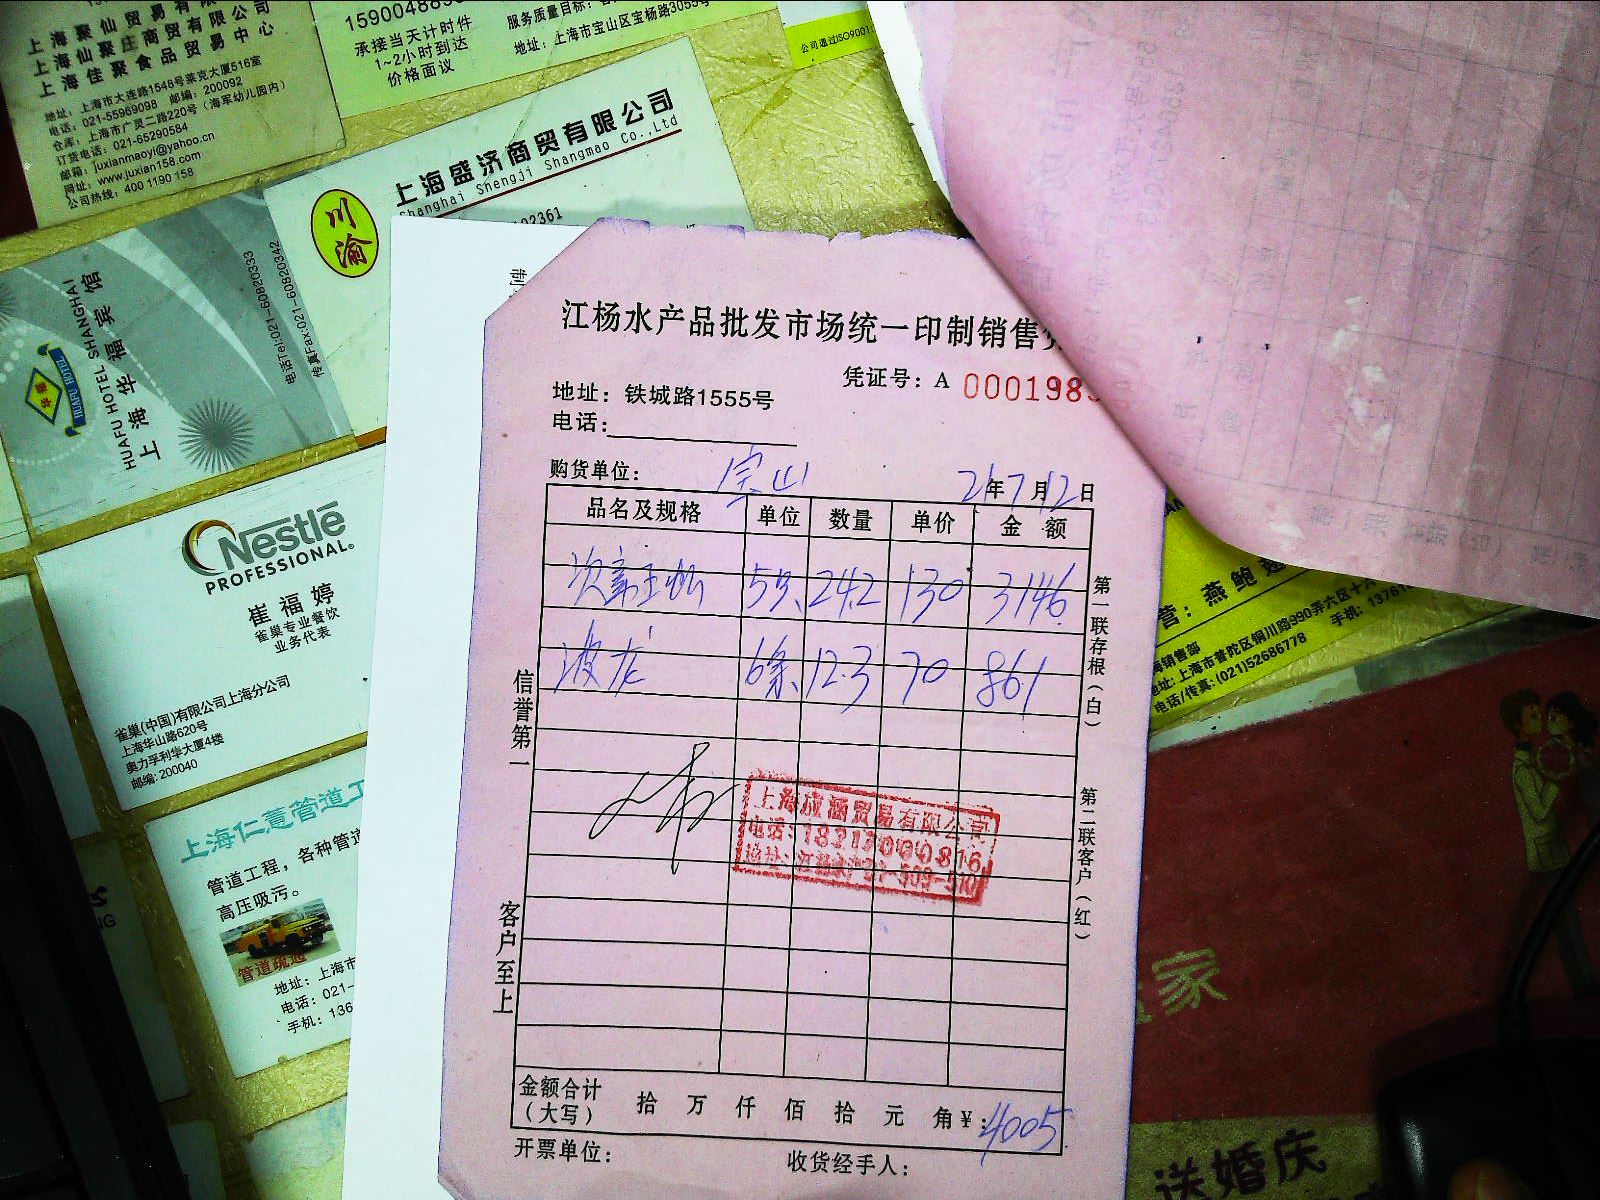 上海聚仙贸易有限
上海仙聚庄商贸有限公司
上海佳聚食品贸易中心
地址：上海市大连路1548号莱克大厦516室
电话：021-55969098 邮编：200092
仓库：上海市广灵二路220号（海军幼儿园内）
订货电话：021-65290584
邮箱：juxianmaoyi@yahoo.cn
网址：www.juxian158.com
公司热线：400 1190 158
承接当天计时件
1~2小时到达
价格面议
服务质量目标：
地址：上海市宝山区宝杨路3055
公司通过ISO9001
川渝
上海盛济商贸有限公司
Shanghai Shengji Shangmao Co.,Ltd
02361
HUAFU HOTEL SHANGHAI
上海华福宾馆
HUAFU HOTEL
电话Tel:021-60820333
传真Fax:021-60820342
Nestlé
PROFESSIONAL
崔福婷
雀巢专业餐饮
业务代表
雀巢(中国)有限公司上海分公司
上海华山路620号
奥力孚利华大厦4楼
邮编：200040
上海仁薏管道工
管道工程，各种管道
高压吸污。
管道疏通
地址：上海市
电话：021-
手机：136
制
江杨水产品批发市场统一印制销售
凭证号：A 000198
地址：铁城路1555号
电话：
购货单位： 宝山 21年7月12日
品名及规格 单位 数量 单价 金额
5只 24.2 130 3146
波龙 6条 12.3 70 861
第一联存根（白）
第二联客户（红）
信誉第一
客户至上
贸易有限公司
电话：
地址：
金额合计（大写） 拾 万 仟 佰 拾 元 角 ¥：4005
开票单位： 收货经手人：
营：燕鲍
销售部
地址：上海市普陀区铜川路990弄六区十
电话/传真：(021)52686778 手机：1376
家
送婚庆